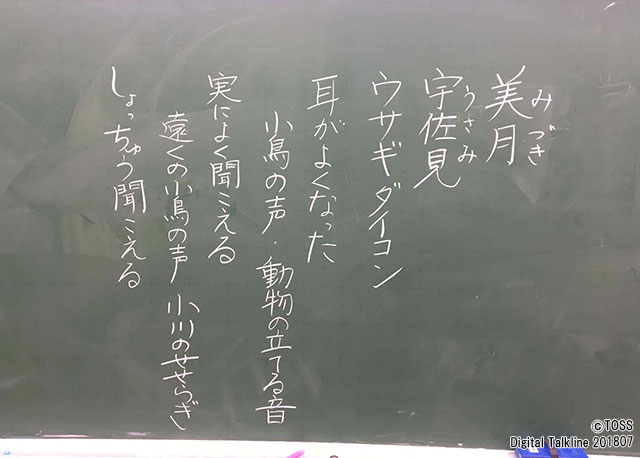 美月
みづき
宇佐見
うさみ
ウサギダイコン
耳がよくなった
小鳥の声・動物の立てる音
実によく聞こえる
遠くの小鳥の声 小川のせせらぎ
しょっちゅう聞こえる
©TOSS
Digital Talkline 201807